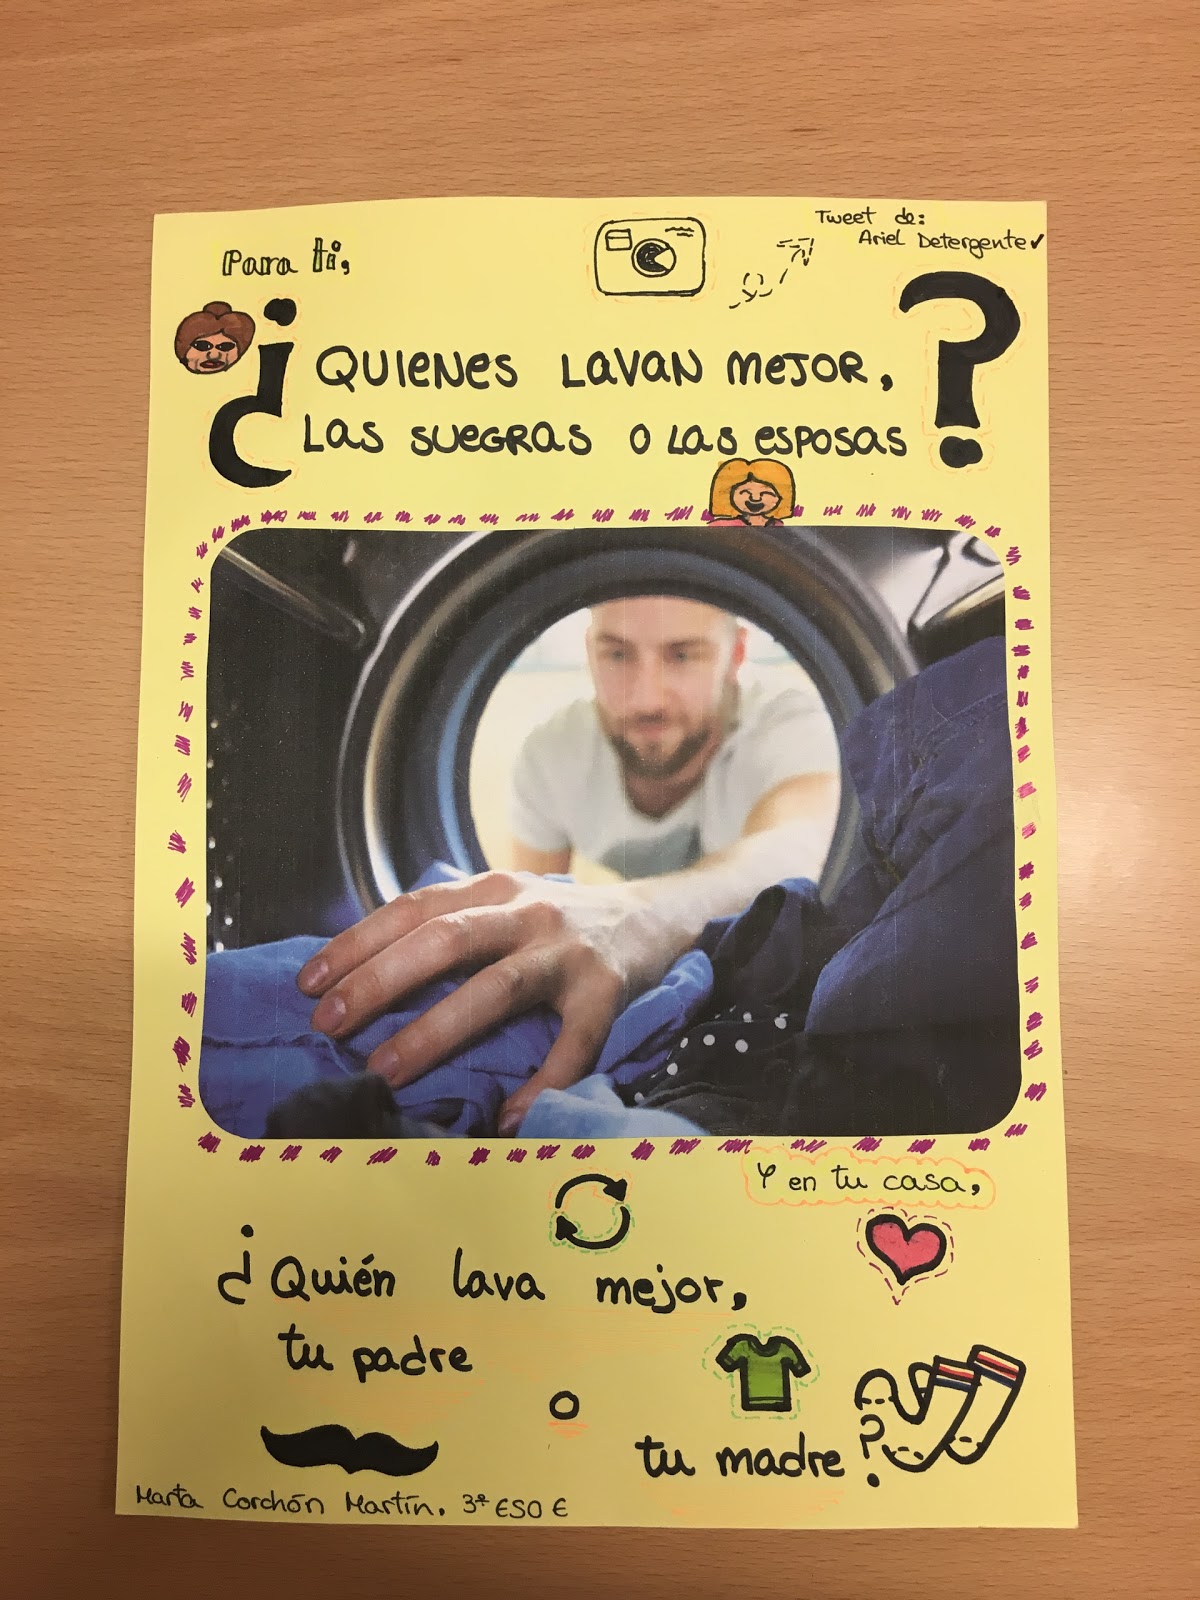 Para ti,
Tweet de:
Ariel Detergente✓
¿QUIENES LAVAN MEJOR,
LAS SUEGRAS O LAS ESPOSAS?
Y en tu casa,
¿Quién lava mejor,
tu padre
o
tu madre?
Marta Corchón Martín. 3º ESO E